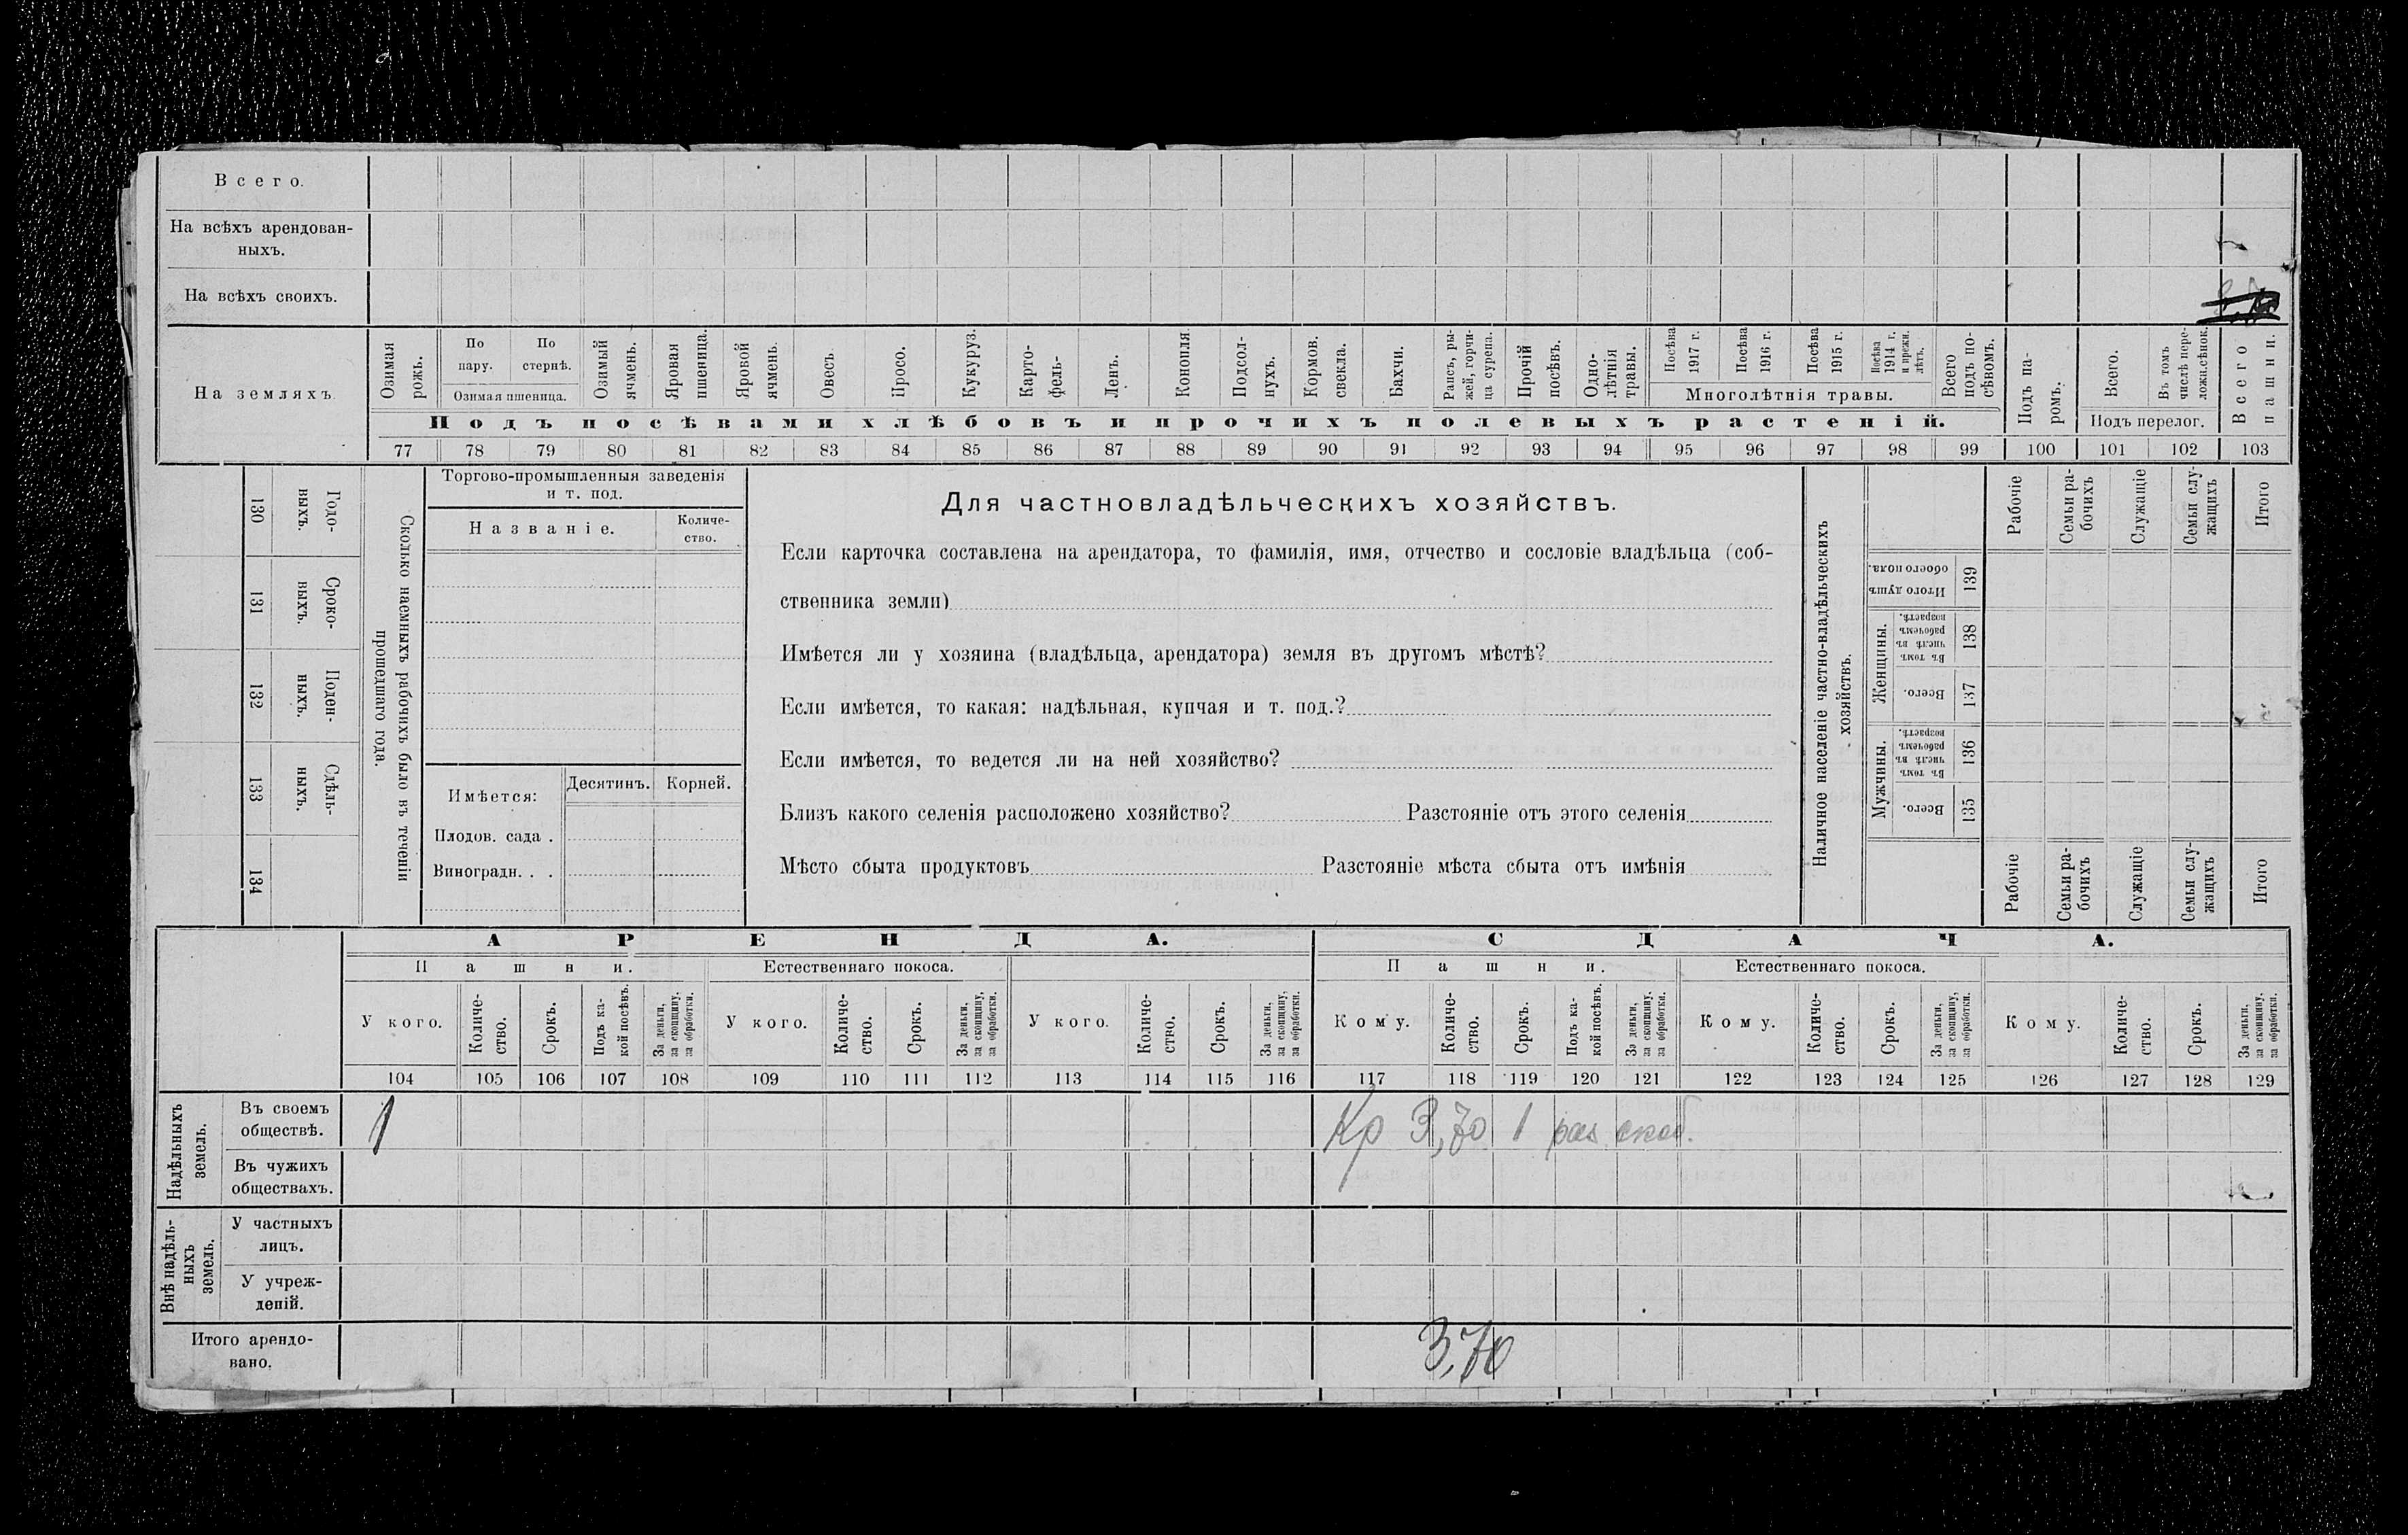 Всего.
На всѣхъ арендован-
ныхъ.
На всѣхъ своихъ.
На земляхъ
Озимая рожь.
По пару.
По стернѣ.
Озимая пшеница.
Озимый ячмень.
Яровая пшеница.
Яровой ячмень
Овесъ
Просо.
Кукуруз.
Карто-
фель-
Ленъ.
Конопля
Подсол-
нухъ.
Кормов. свекла.
Бахчи.
Рапсъ, ры-
жей, горчи-
ца сурепа.
Прочій посѣвъ.
Одно-
лѣтнія травы.
Посѣва 1917 г.
Посѣва 1916 г.
Посѣва 1915 г.
Посѣва 1914 г. и прежн. лѣтъ.
Многолѣтнія травы.
Всего подъ по-
сѣвомъ.
Подъ па-
ромъ.
Всего.
Въ томъ числѣ пере-
ложн.сѣнок.
Подъ перелог.
Всего пашни.
Подъ посѣвами хлѣбовъ и прочихъ полевыхъ растеній.
77 78 79 80 81 82 83 84 85 86 87 88 89 90 91 92 93 94 95 96 97 98 99 100 101 102 103
130 131 132 133 134
Годо-
выхъ.
Сроко-
ныхъ.
Поден-
ныхъ.
Сдѣль-
ныхъ.
Сколько наемныхъ рабочихъ было въ теченіи
прошедшаго года.
Торгово-промышленныя заведенія
и т. под.
Названіе.
Количе-
ство.
Имѣется:
Десятинъ.
Корней.
Плодов. сада .
Виноградн. . .
Для частновладѣльческихъ хозяйствъ.
Если карточка составлена на арендатора, то фамилія, имя, отчество и сословіе владѣльца (соб-
ственника земли)
Имѣется ли у хозяина (владѣльца, арендатора) земля въ другомъ мѣстѣ?
Если имѣется, то какая: надѣльная, купчая и т. под.?
Если имѣется, то ведется ли на ней хозяйство?
Близъ какого селенія расположено хозяйство? Разстояніе отъ этого селенія
Мѣсто сбыта продуктовъ Разстояніе мѣста сбыта отъ имѣнія
Наличное населеніе частно-владѣльческихъ
хозяйствъ.
Итого душъ
обоего пола.
139
Женщины.
Въ томъ числѣ въ рабочемъ возрастѣ.
138
Всего.
137
Мужчины.
Въ томъ числѣ въ рабочемъ возрастѣ.
136
Всего.
135
Рабочіе
Семьи ра-
бочихъ
Служащіе
Семьи слу-
жащихъ
Итого
Рабочіе
Семьи ра-
бочихъ
Служащіе
Семьи слу-
жащихъ
Итого
АРЕНДА. СДАЧА.
Пашни. Естественнаго покоса. Пашни. Естественнаго покоса.
У кого.
Количе-
ство.
Срокъ.
Подъ ка-
кой посѣвъ.
За деньги,
за скопщину,
за обработки.
У кого.
Количе-
ство.
Срокъ.
За деньги,
за скопщину,
за обработки.
У кого.
Количе-
ство.
Срокъ.
За деньги,
за скопщину,
за обработки.
Кому.
Количе-
ство.
Срокъ.
Подъ ка-
кой посѣвъ.
За деньги,
за скопщину,
за обработки.
Кому.
Количе-
ство.
Срокъ.
За деньги,
за скопщину,
за обработки.
Кому.
Количе-
ство.
Срокъ.
За деньги,
за скопщину,
за обработки.
104 105 106 107 108 109 110 111 112 113 114 115 116 117 118 119 120 121 122 123 124 125 126 127 128 129
Надѣльныхъ
земель.
Въ своемъ
обществѣ.
1
Кр 3,70 1 раз
Въ чужихъ
обществахъ.
Внѣ надѣль-
ныхъ
земель.
У частныхъ
лицъ.
У учреж-
деній.
Итого арендо-
вано.
3,70